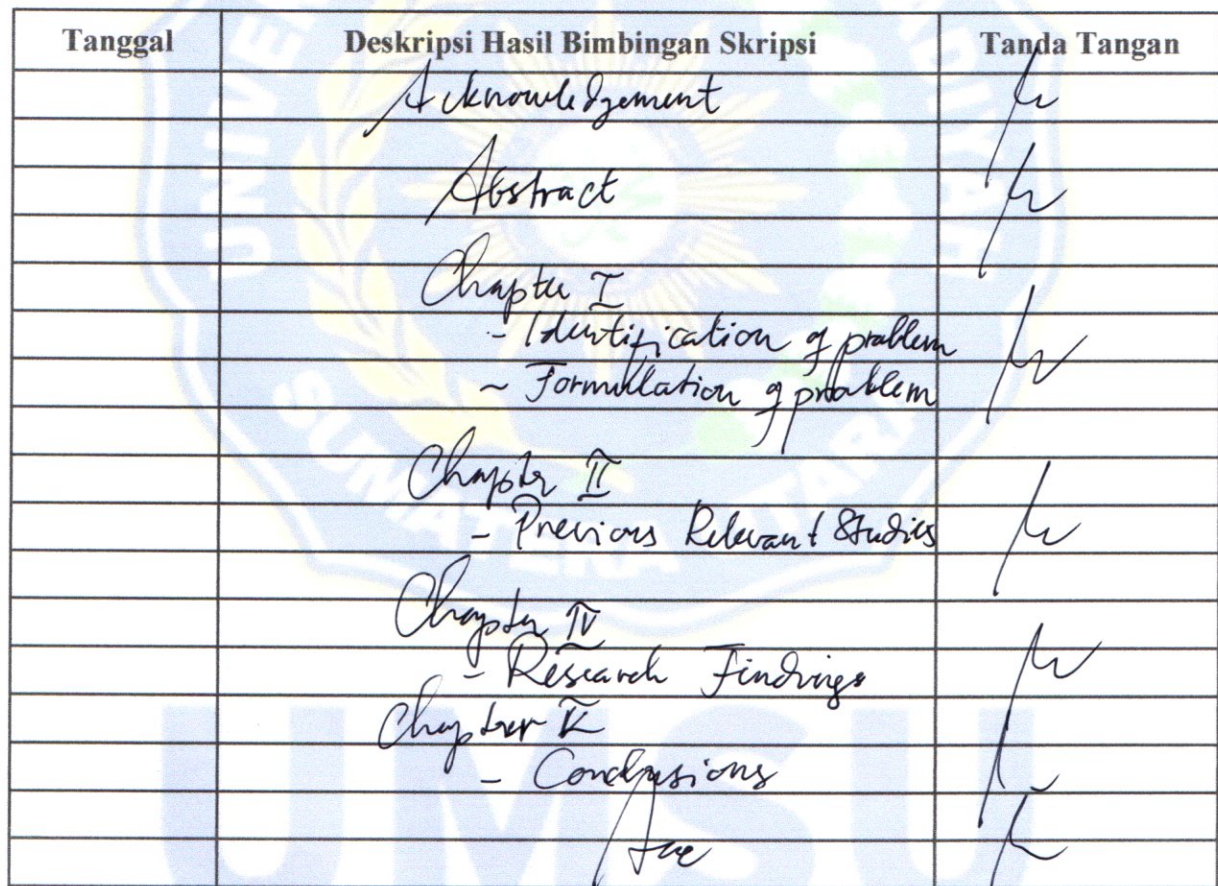 Tanggal Deskripsi Hasil Bimbingan Skripsi Tanda Tangan
Acknowledgement
Abstract
Chapter I
- Identification of problem
- Formullation of problem
Chapter II
- Previous Relevant Studies
Chapter IV
- Research Findings
Chapter V
- Conclusions
UNIVE
SUMATERA UTARA
UMSU